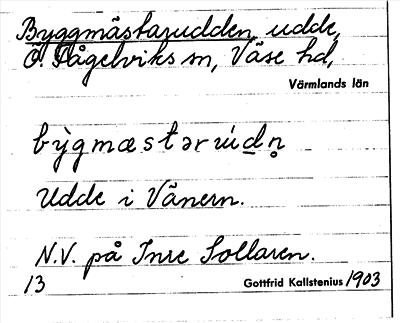 Byggmästarudden, udde,
Ö. Fågelviks sn, Väse hd,
Värmlands län
bỳgmæstərúdn̥
Udde i Vänern.
N.V. på Inre Sollaren.
13 Gottfrid Kallstenius 1903